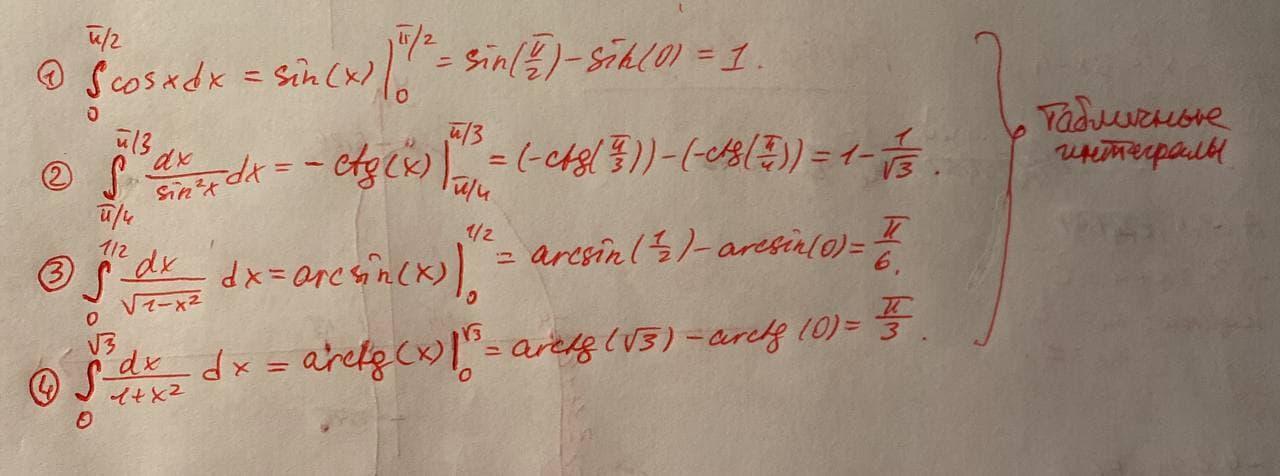 ① ∫₀^{π/2} cosxdx = sin(x)|₀^{π/2} = sin(π/2) − sin(0) = 1.
② ∫_{π/4}^{π/3} dx/sin²x dx = − ctg(x)|_{π/4}^{π/3} = (−ctg(π/3)) − (−ctg(π/4)) = 1 − 1/√3.
③ ∫₀^{1/2} dx/√(1−x²) dx = arcsin(x)|₀^{1/2} = arcsin(1/2) − arcsin(0) = π/6.
④ ∫₀^{√3} dx/(1+x²) dx = arctg(x)|₀^{√3} = arctg(√3) − arctg(0) = π/3.
Табличные
интегралы